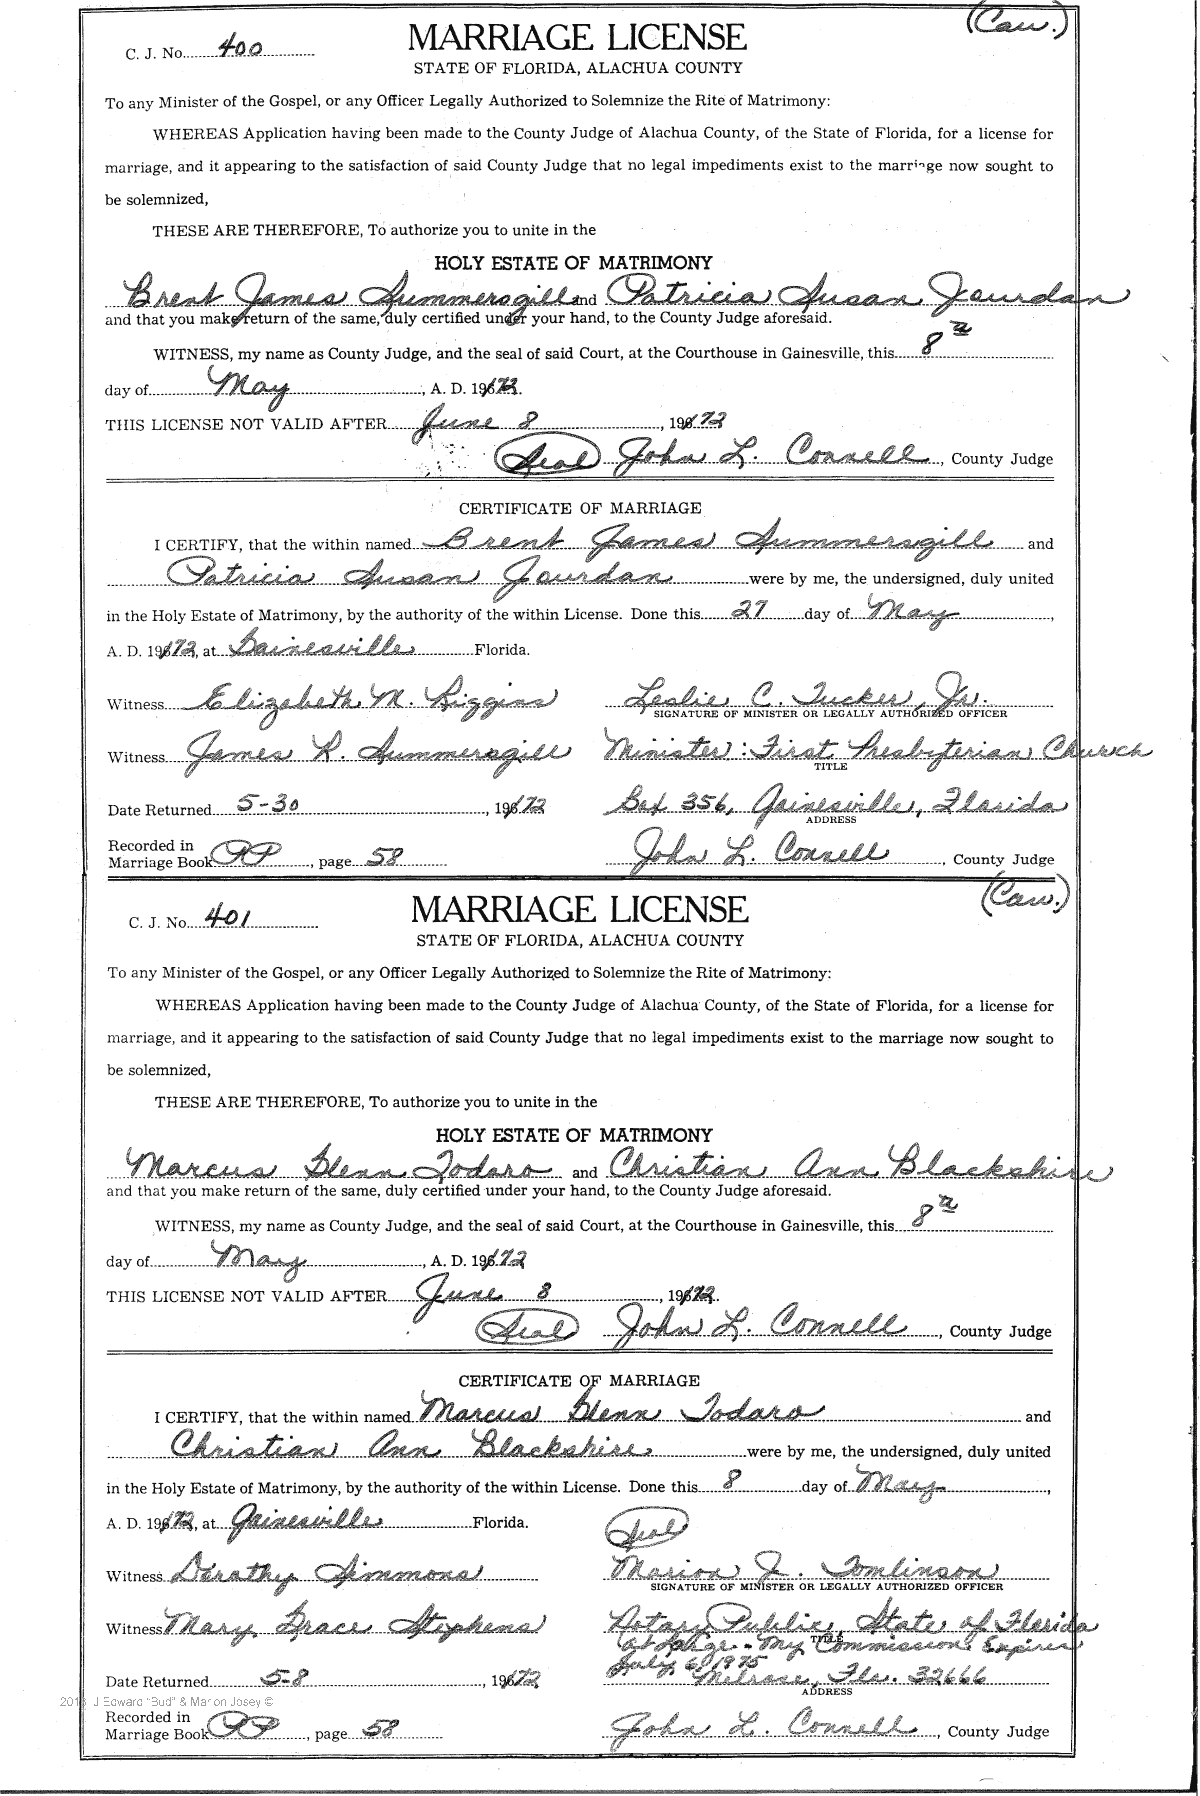 (Cau.)
C. J. No. 400
MARRIAGE LICENSE
STATE OF FLORIDA, ALACHUA COUNTY
To any Minister of the Gospel, or any Officer Legally Authorized to Solemnize the Rite of Matrimony:
WHEREAS Application having been made to the County Judge of Alachua County, of the State of Florida, for a license for
marriage, and it appearing to the satisfaction of said County Judge that no legal impediments exist to the marriage now sought to
be solemnized,
THESE ARE THEREFORE, To authorize you to unite in the
HOLY ESTATE OF MATRIMONY
Brent James Summersgill and Patricia Susan Jourdan
and that you make return of the same, duly certified under your hand, to the County Judge aforesaid.
WITNESS, my name as County Judge, and the seal of said Court, at the Courthouse in Gainesville, this 8th
day of May, A. D. 1972.
THIS LICENSE NOT VALID AFTER June 8, 1972
(Seal) John L. Connell, County Judge
CERTIFICATE OF MARRIAGE
I CERTIFY, that the within named Brent James Summersgill and
Patricia Susan Jourdan were by me, the undersigned, duly united
in the Holy Estate of Matrimony, by the authority of the within License. Done this 27 day of May,
A. D. 1972, at Gainesville Florida.
Witness Elizabeth M. Riggins Leslie C. Tucker, Jr.
SIGNATURE OF MINISTER OR LEGALLY AUTHORIZED OFFICER
Witness James R. Summersgill Minister: First Presbyterian Church
TITLE
Date Returned 5-30, 1972 Box 356, Gainesville, Florida
ADDRESS
Recorded in
Marriage Book PP, page 58 John L. Connell, County Judge
(Cau.)
C. J. No. 401
MARRIAGE LICENSE
STATE OF FLORIDA, ALACHUA COUNTY
To any Minister of the Gospel, or any Officer Legally Authorized to Solemnize the Rite of Matrimony:
WHEREAS Application having been made to the County Judge of Alachua County, of the State of Florida, for a license for
marriage, and it appearing to the satisfaction of said County Judge that no legal impediments exist to the marriage now sought to
be solemnized,
THESE ARE THEREFORE, To authorize you to unite in the
HOLY ESTATE OF MATRIMONY
Marcus Glenn Todaro and Christian Ann Blackshire
and that you make return of the same, duly certified under your hand, to the County Judge aforesaid.
WITNESS, my name as County Judge, and the seal of said Court, at the Courthouse in Gainesville, this 8th
day of May, A. D. 1972
THIS LICENSE NOT VALID AFTER June 8, 1972.
(Seal) John L. Connell, County Judge
CERTIFICATE OF MARRIAGE
I CERTIFY, that the within named Marcus Glenn Todaro and
Christian Ann Blackshire were by me, the undersigned, duly united
in the Holy Estate of Matrimony, by the authority of the within License. Done this 8 day of May,
A. D. 1972, at Gainesville Florida.
(Seal)
Witness Dorothy Simmons Marion J. Tomlinson
SIGNATURE OF MINISTER OR LEGALLY AUTHORIZED OFFICER
Witness Mary Grace Stephens Notary Public, State of Florida
at Large. My Commission Expires
TITLE
July 6, 1975
Date Returned 5-8, 1972 Melrose, Fla. 32666
ADDRESS
J Edward "Bud" & Marion Josey ©
Recorded in
Marriage Book PP, page 58 John L. Connell, County Judge